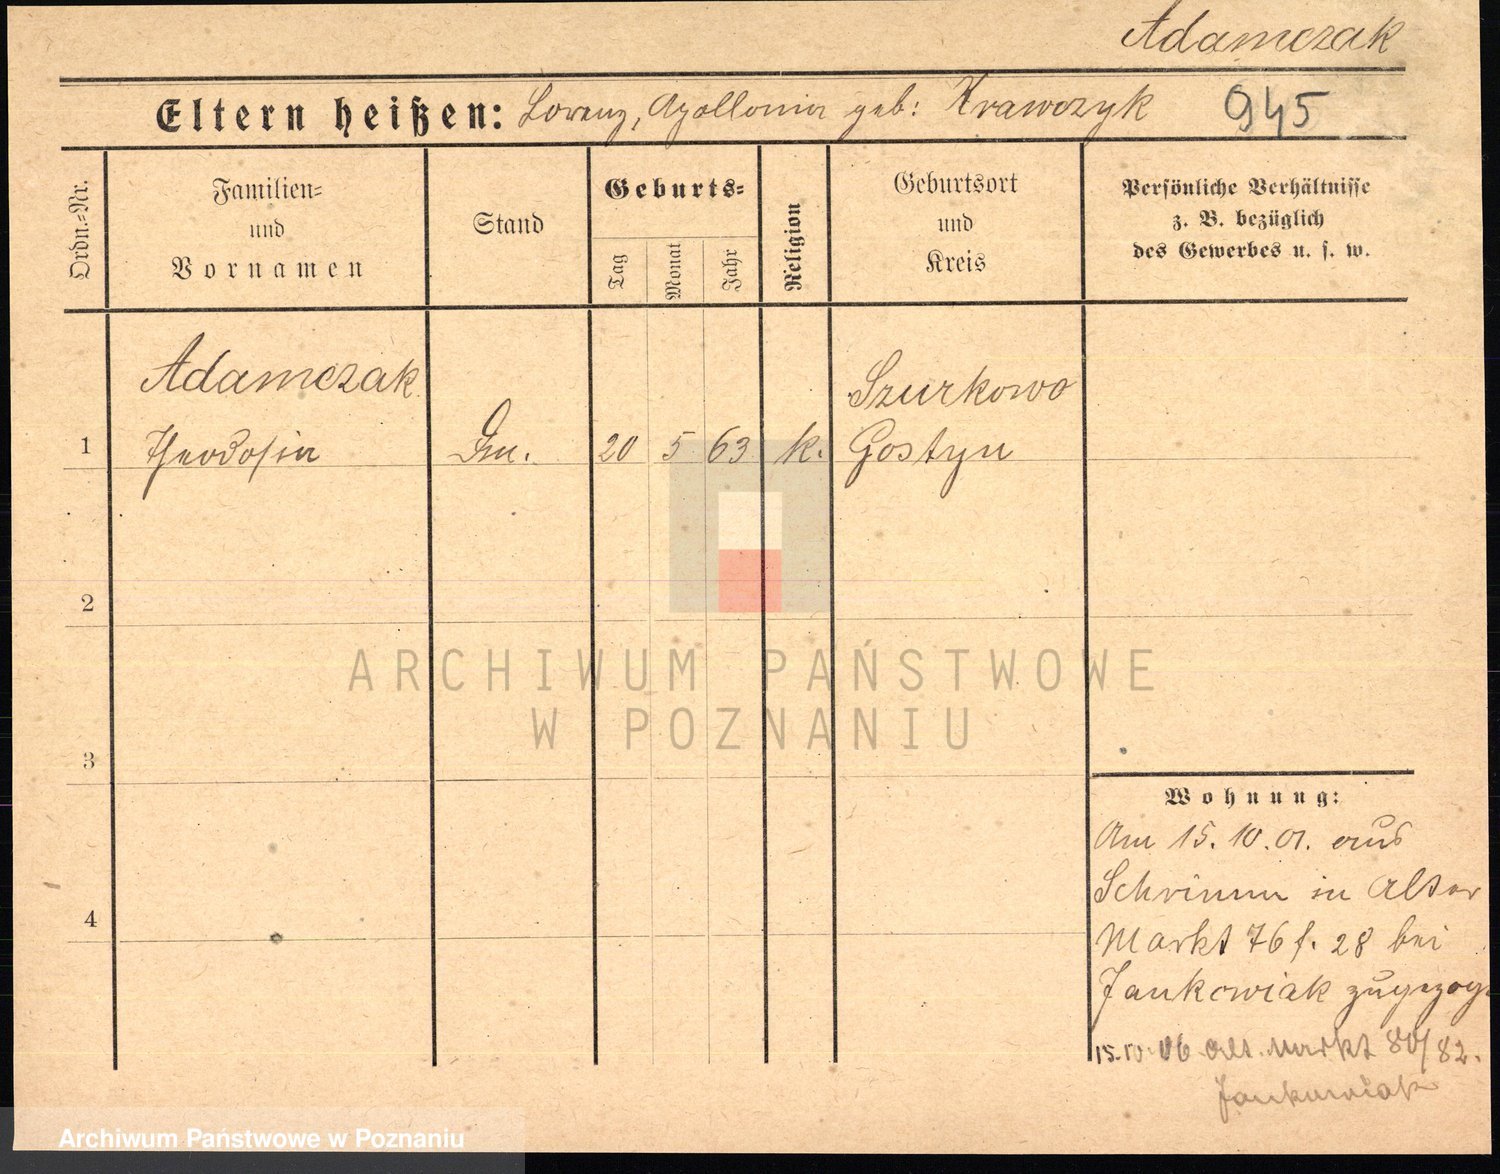 Adamczak
Eltern heißen: Lorenz, Apollonia geb: Krawczyk 945
Ordn.=Nr.
Familien=
und
Vornamen
Stand
Geburts=
Tag
Monat
Jahr
Religion
Geburtsort
und
Kreis
Persönliche Verhältnisse
z. B. bezüglich
des Gewerbes u. s. w.
Adamczak Szurkowo
1 Theodosia 20 5 63 k. Gostyn
2
3
4
ARCHIWUM PAŃSTWOWE
W POZNANIU
Wohnung:
Am 15.10.01. aus
Schrimm in Alter
Markt 76 f. 28 bei
Jankowiak zugezog
15.10.06 Alt. Markt 80/82.
Jankowiak
Archiwum Państwowe w Poznaniu